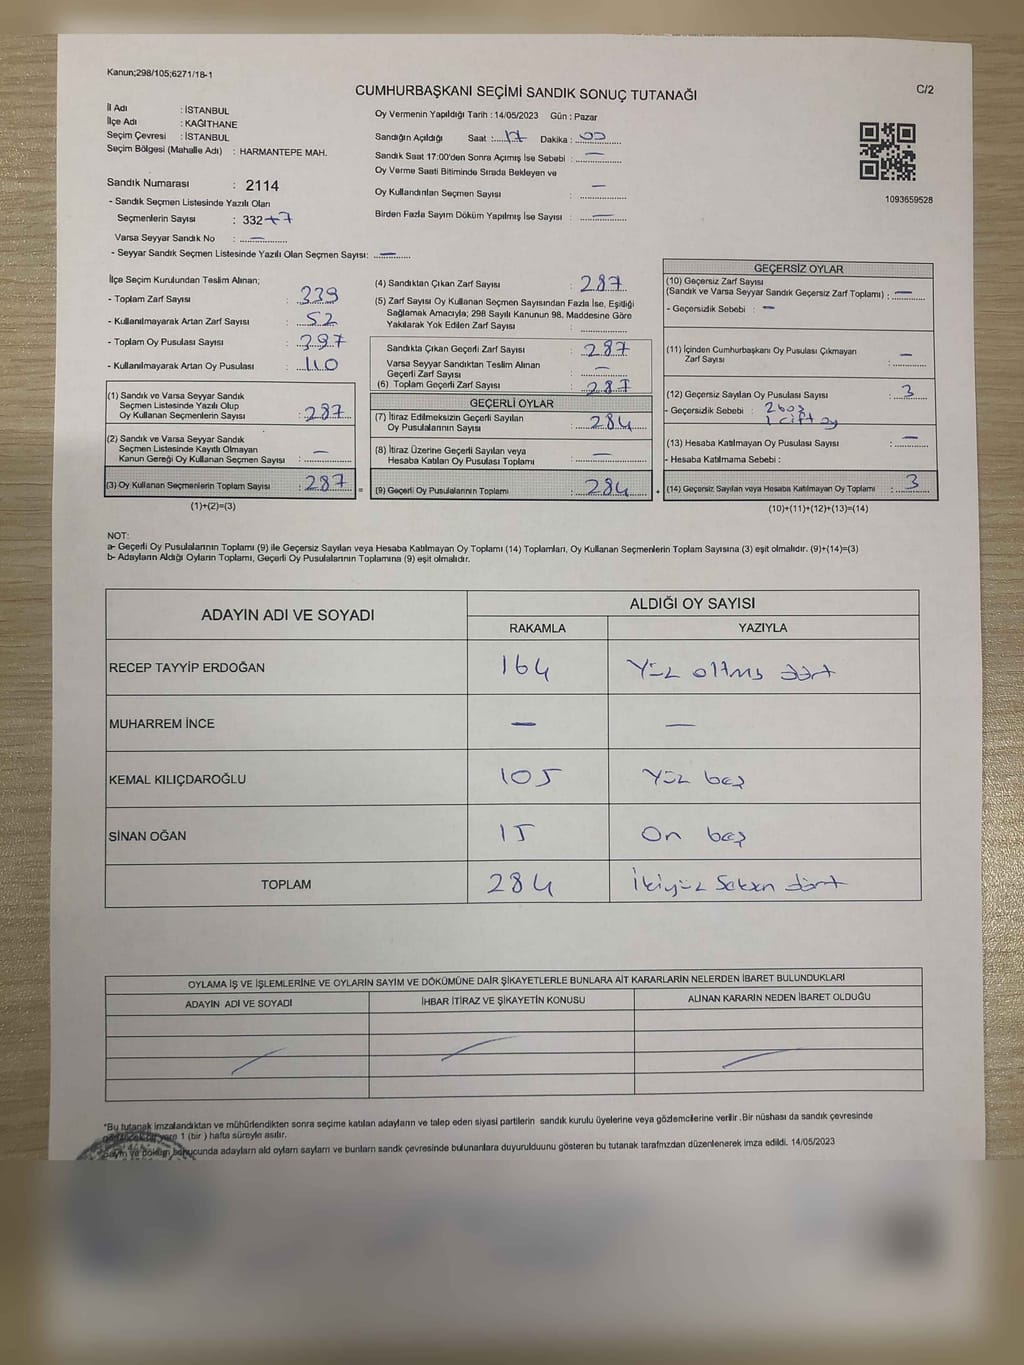 Kanun;298/105;6271/18-1
CUMHURBAŞKANI SEÇİMİ SANDIK SONUÇ TUTANAĞI
C/2
İl Adı : İSTANBUL
İlçe Adı : KAĞITHANE
Seçim Çevresi : İSTANBUL
Seçim Bölgesi (Mahalle Adı) : HARMANTEPE MAH.
Sandık Numarası : 2114
- Sandık Seçmen Listesinde Yazılı Olan
Seçmenlerin Sayısı : 332+7
Varsa Seyyar Sandık No : —
- Seyyar Sandık Seçmen Listesinde Yazılı Olan Seçmen Sayısı: —
Oy Vermenin Yapıldığı Tarih : 14/05/2023 Gün : Pazar
Sandığın Açıldığı Saat : 17 Dakika : 00
Sandık Saat 17:00'den Sonra Açımış İse Sebebi : —
Oy Verme Saati Bitiminde Sırada Bekleyen ve
Oy Kullandırılan Seçmen Sayısı : —
Birden Fazla Sayım Döküm Yapılmış İse Sayısı : —
1093659528
İlçe Seçim Kurulundan Teslim Alınan;
- Toplam Zarf Sayısı : 339
- Kullanılmayarak Artan Zarf Sayısı : 52
- Toplam Oy Pusulası Sayısı : 397
- Kullanılmayarak Artan Oy Pusulası : 110
(1) Sandık ve Varsa Seyyar Sandık
Seçmen Listesinde Yazılı Olup
Oy Kullanan Seçmenlerin Sayısı : 287
(2) Sandık ve Varsa Seyyar Sandık
Seçmen Listesinde Kayıtlı Olmayan
Kanun Gereği Oy Kullanan Seçmen Sayısı : —
(3) Oy Kullanan Seçmenlerin Toplam Sayısı : 287 =
(1)+(2)=(3)
(4) Sandıktan Çıkan Zarf Sayısı : 287
(5) Zarf Sayısı Oy Kullanan Seçmen Sayısından Fazla İse, Eşitliği
Sağlamak Amacıyla; 298 Sayılı Kanunun 98. Maddesine Göre
Yakılarak Yok Edilen Zarf Sayısı :
Sandıkta Çıkan Geçerli Zarf Sayısı : 287
Varsa Seyyar Sandıktan Teslim Alınan
Geçerli Zarf Sayısı : —
(6) Toplam Geçerli Zarf Sayısı : 287
GEÇERLİ OYLAR
(7) İtiraz Edilmeksizin Geçerli Sayılan
Oy Pusulalarının Sayısı : 284
(8) İtiraz Üzerine Geçerli Sayılan veya
Hesaba Katılan Oy Pusulası Toplamı : —
(9) Geçerli Oy Pusulalarının Toplamı : 284 +
GEÇERSİZ OYLAR
(10) Geçersiz Zarf Sayısı
(Sandık ve Varsa Seyyar Sandık Geçersiz Zarf Toplamı) : —
- Geçersizlik Sebebi : —
(11) İçinden Cumhurbaşkanı Oy Pusulası Çıkmayan
Zarf Sayısı : —
(12) Geçersiz Sayılan Oy Pusulası Sayısı : 3
- Geçersizlik Sebebi : 2 boş
1 çift oy
(13) Hesaba Katılmayan Oy Pusulası Sayısı : —
- Hesaba Katılmama Sebebi :
(14) Geçersiz Sayılan veya Hesaba Katılmayan Oy Toplamı : 3
(10)+(11)+(12)+(13)=(14)
NOT:
a- Geçerli Oy Pusulalarının Toplamı (9) ile Geçersiz Sayılan veya Hesaba Katılmayan Oy Toplamı (14) Toplamları, Oy Kullanan Seçmenlerin Toplam Sayısına (3) eşit olmalıdır. (9)+(14)=(3)
b- Adayların Aldığı Oyların Toplamı, Geçerli Oy Pusulalarının Toplamına (9) eşit olmalıdır.
ADAYIN ADI VE SOYADI ALDIĞI OY SAYISI
RAKAMLA YAZIYLA
RECEP TAYYİP ERDOĞAN 164 Yüz altmış dört
MUHARREM İNCE — —
KEMAL KILIÇDAROĞLU 105 Yüz beş
SİNAN OĞAN 15 On beş
TOPLAM 284 İkiyüz Seksen dört
OYLAMA İŞ VE İŞLEMLERİNE VE OYLARIN SAYIM VE DÖKÜMÜNE DAİR ŞİKAYETLERLE BUNLARA AİT KARARLARIN NELERDEN İBARET BULUNDUKLARI
ADAYIN ADI VE SOYADI İHBAR İTİRAZ VE ŞİKAYETİN KONUSU ALINAN KARARIN NEDEN İBARET OLDUĞU
*Bu tutanak imzalandıktan ve mühürlendikten sonra seçime katılan adayların ve talep eden siyasi partilerin sandık kurulu üyelerine veya gözlemcilerine verilir .Bir nüshası da sandık çevresinde
yere 1 (bir ) hafta süreyle asılır.
Sayım ve döküm sonucunda adayların ald oyların sayların ve bunların sandk çevresinde bulunanlara duyurulduunu gösteren bu tutanak tarafmzdan düzenlenerek imza edildi. 14/05/2023